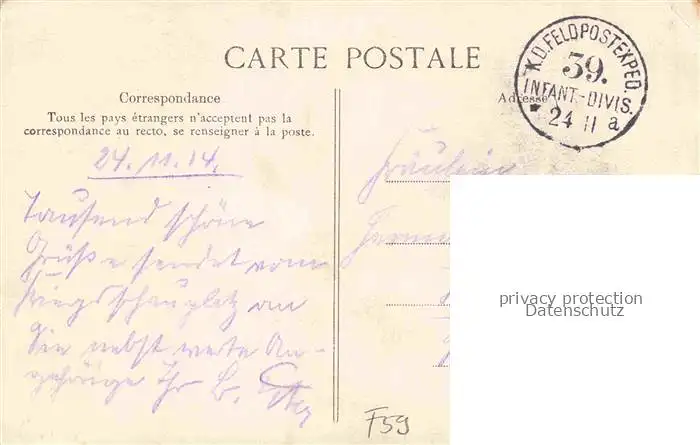 CARTE POSTALE
K.D. FELDPOSTEXPED.
39.
INFANT.-DIVIS.
* 24 11 a
Correspondance
Adresse
Tous les pays étrangers n'acceptent pas la
correspondance au recto, se renseigner à la poste.
24.11.14.
Tausend schöne
Grüße sendet vom
Kriegsschauplatz an
Sie nebst werte An-
gehörige Ihr
Fräulein
privacy protection
Datenschutz
F59